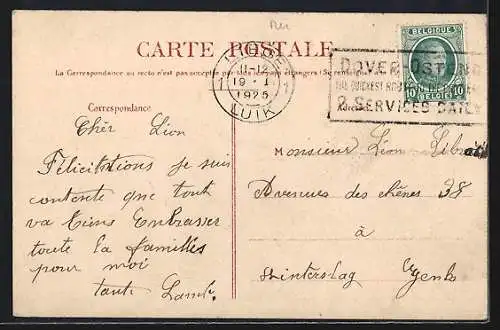 CARTE POSTALE
La Correspondance au recto n'est pas acceptée par tous les pays étrangers (Se renseigner
LIÈGE
11-12
19 · I
1 1
1925
LUIK
BELGIQUE
10 BELGIË 10
DOVER OSTEND
THE QUICKEST
3 SERVICES DAILY
Correspondance
Adresse
Chèr Lion
Félicitations je suis
contente que tout
va tiens Enbrasser
toute la familles
pour moi
tante
Monsieur Léon
Avenues des chênes 38
à
Winterslag Genk